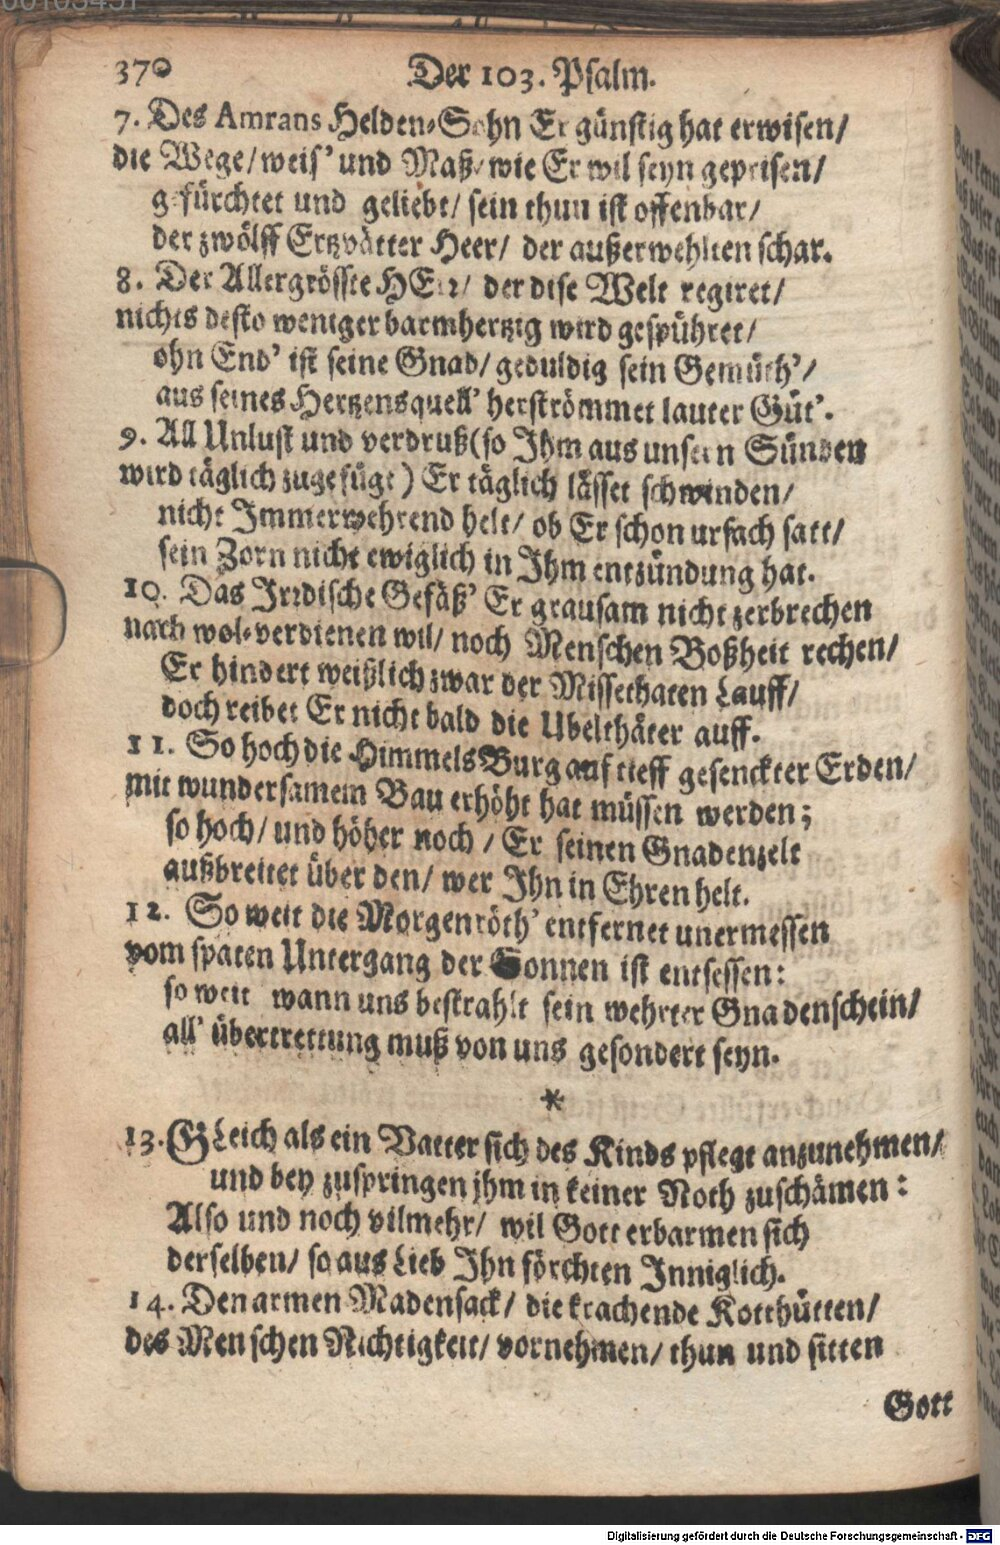 370 Der 103. Psalm.
7. Des Amrans Helden-Sohn Er günstig hat erwisen/
die Wege/ weis' und Maß/ wie Er wil seyn geprisen/
gefürchtet und geliebt/ sein thun ist offenbar/
der zwölff Ertzvätter Heer/ der außerwehlten schar.
8. Der Allergrösste HErr/ der dise Welt regiret/
nichts desto weniger barmhertzig wird gespühret/
ohn End' ist seine Gnad/ geduldig sein Gemüth'/
aus seines Hertzensquell' herströmmet lauter Güt'.
9. All Unlust und verdruß (so Ihm aus unsern Sünden
wird täglich zugefügt) Er täglich lässet schwinden/
nicht Immerwehrend helt/ ob Er schon ursach satt/
sein Zorn nicht ewiglich in Ihm entzündung hat.
10. Das Irrdische Gefäß' Er grausam nicht zerbrechen
nach wol-verdienen wil/ noch Menschen Boßheit rechen/
Er hindert weißlich zwar der Missethaten Lauff/
doch reibet Er nicht bald die Ubelthäter auff.
11. So hoch die Himmels Burg auf tieff gesenckter Erden/
mit wundersamem Bau erhöht hat müssen werden;
so hoch/ und höher noch/ Er seinen Gnadenzelt
außbreitet über den/ wer Ihn in Ehren helt.
12. So weit die Morgenröth' entfernet unermessen
vom spaten Untergang der Sonnen ist entsessen:
so weit wann uns bestrahlt sein wehrter Gnadenschein/
all' übertrettung muß von uns gesondert seyn.
*
13. GLeich als ein Vatter sich des Kinds pflegt anzunehmen/
und bey zuspringen jhm in keiner Noth zuschämen:
Also und noch vilmehr/ wil Gott erbarmen sich
derselben/ so aus Lieb Ihn förchten Inniglich.
14. Den armen Madensack/ die krachende Kotthütten/
des Menschen Nichtigkeit/ vornehmen/ thun und sitten
Gott
Digitalisierung gefördert durch die Deutsche Forschungsgemeinschaft - DFG